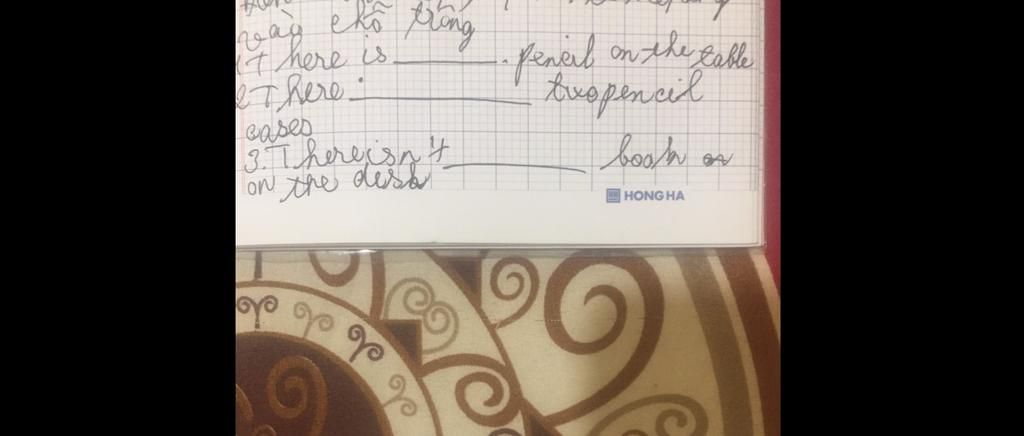 vào chỗ trống
There is ______. pencil on the table
2 There ______ two pencil
cases
3. There isn't ______ book
on the desk
HONG HA